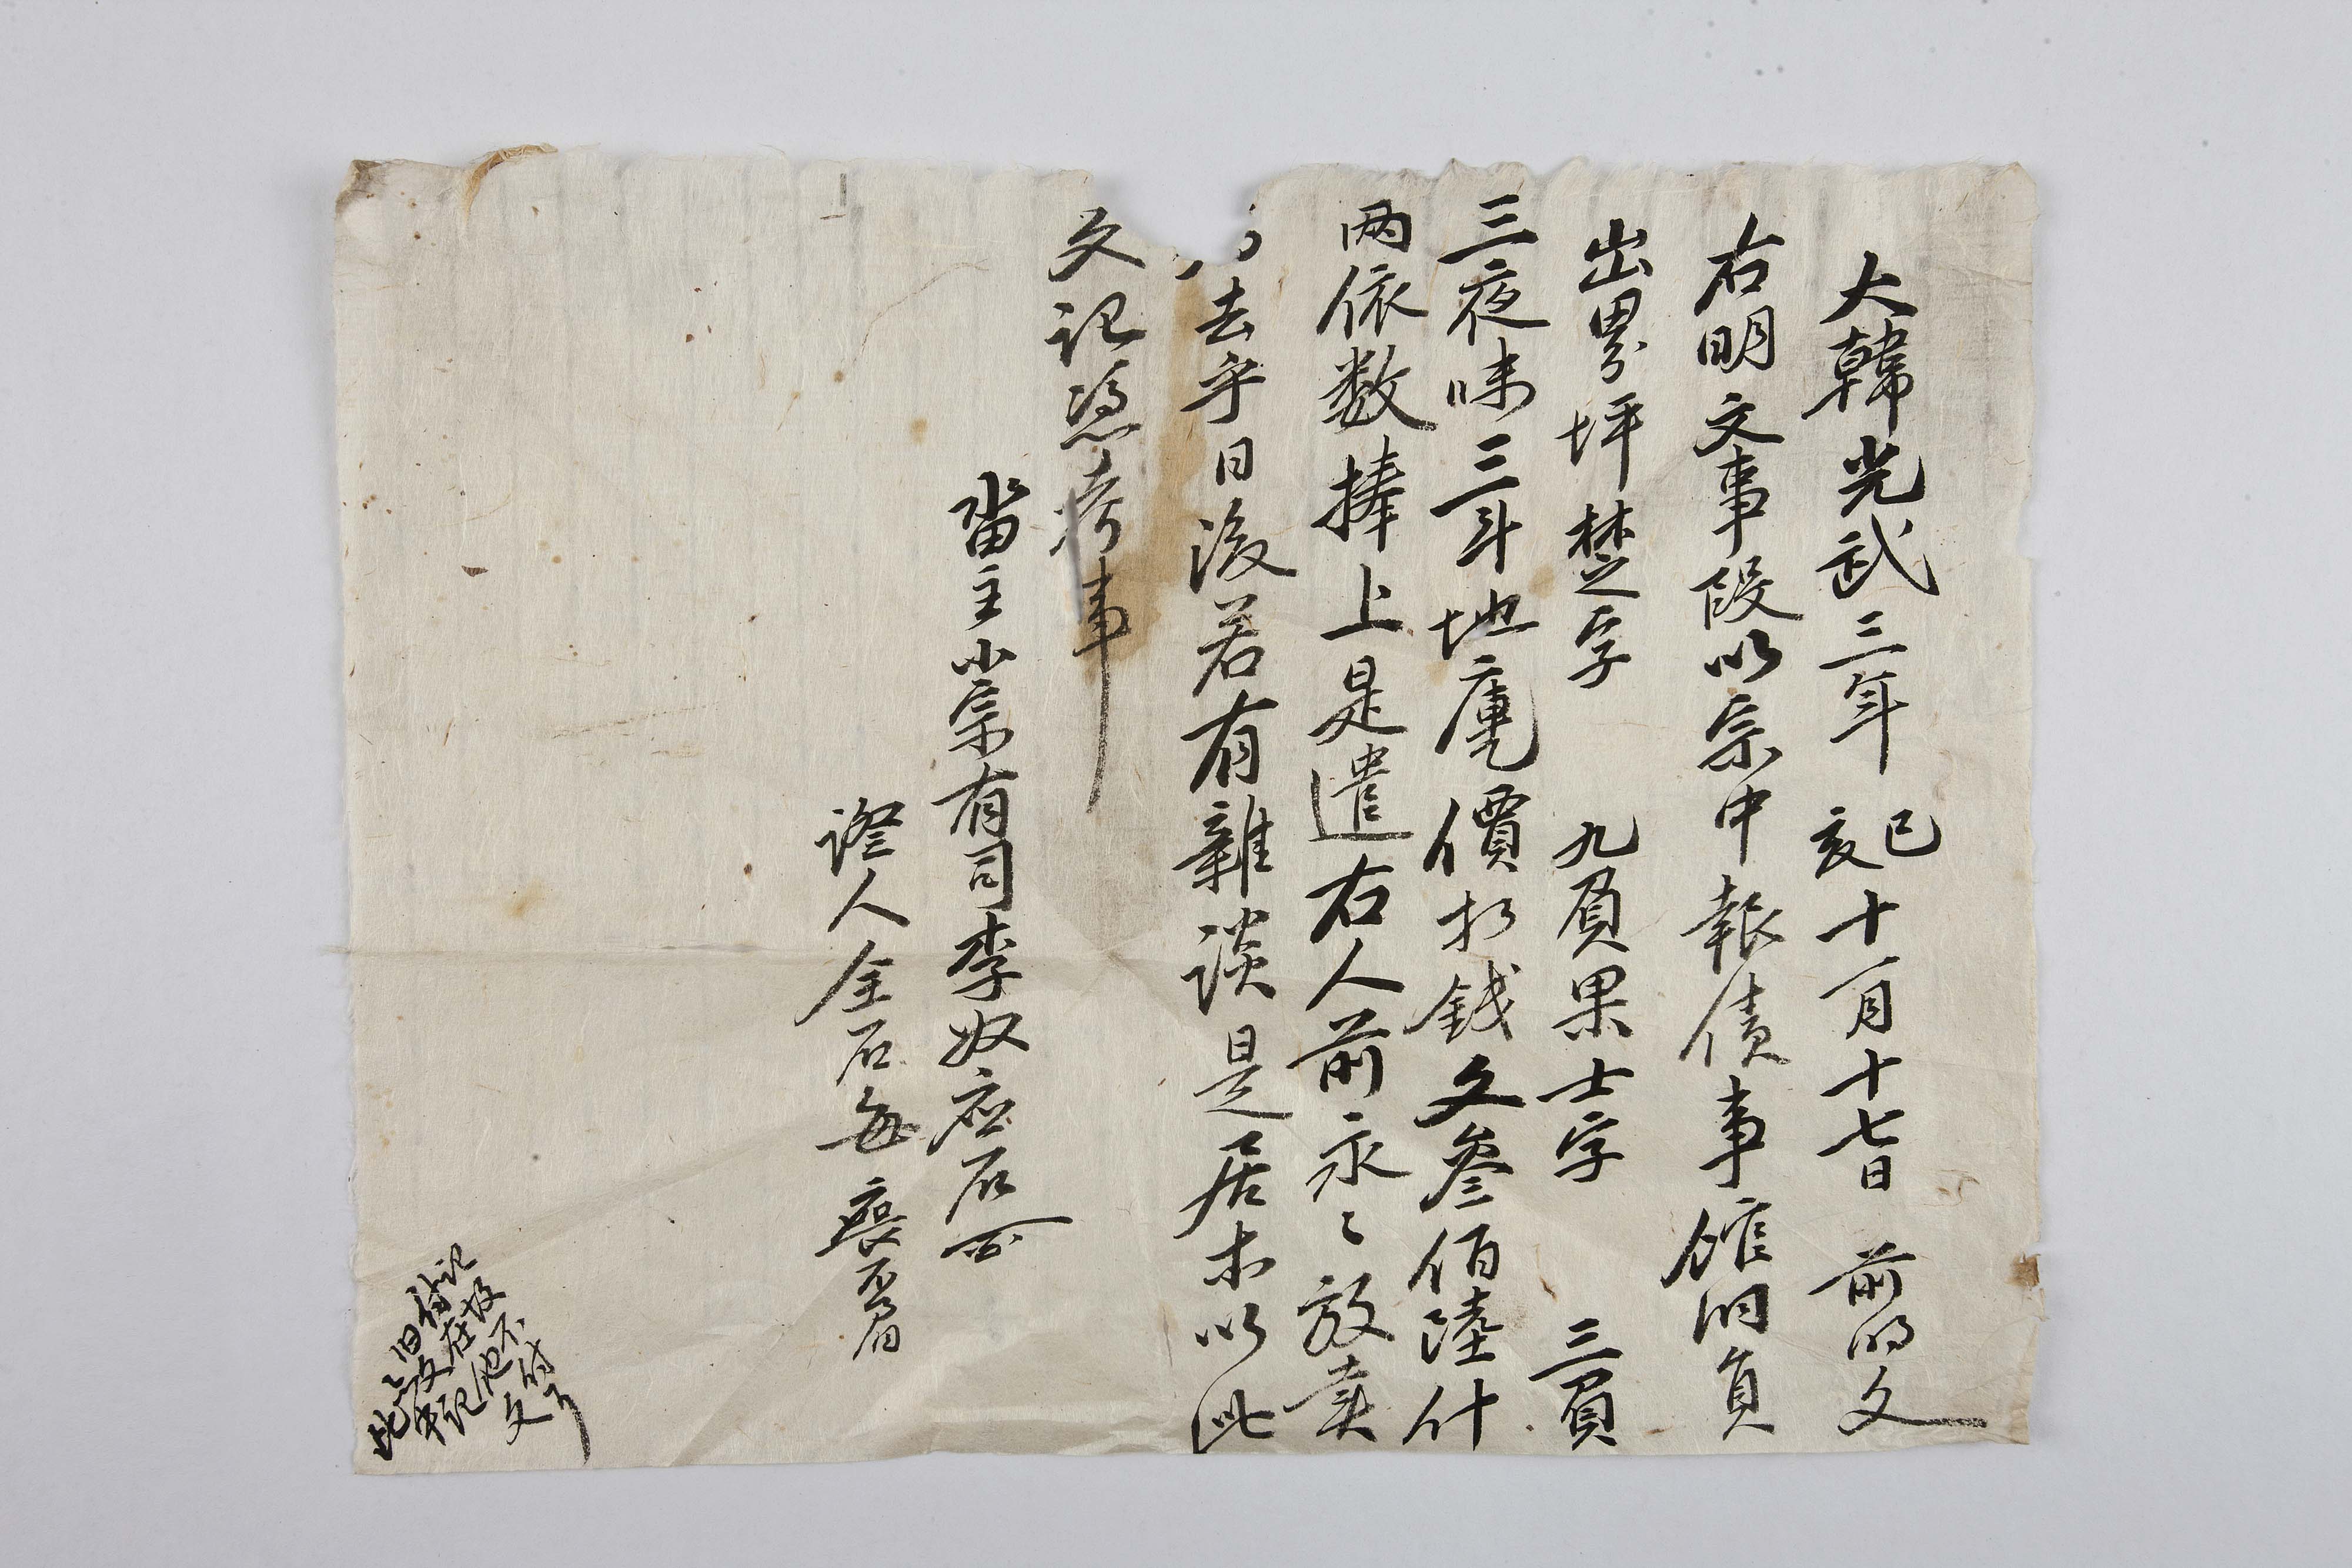 大韓光武三年己亥十一月十七日 前明文
右明文事段以宗中報債事 洞員
出畓坪楚字 九負果士字 三負
三夜味三斗地庫價折錢文叁佰陸什
兩依数捧上是遣右人前永〻放賣
去乎日後若有雜談是居木以此
文記憑考事
畓主小宗有司李奴应石
證人金石每 喪不着
此畓旧文記